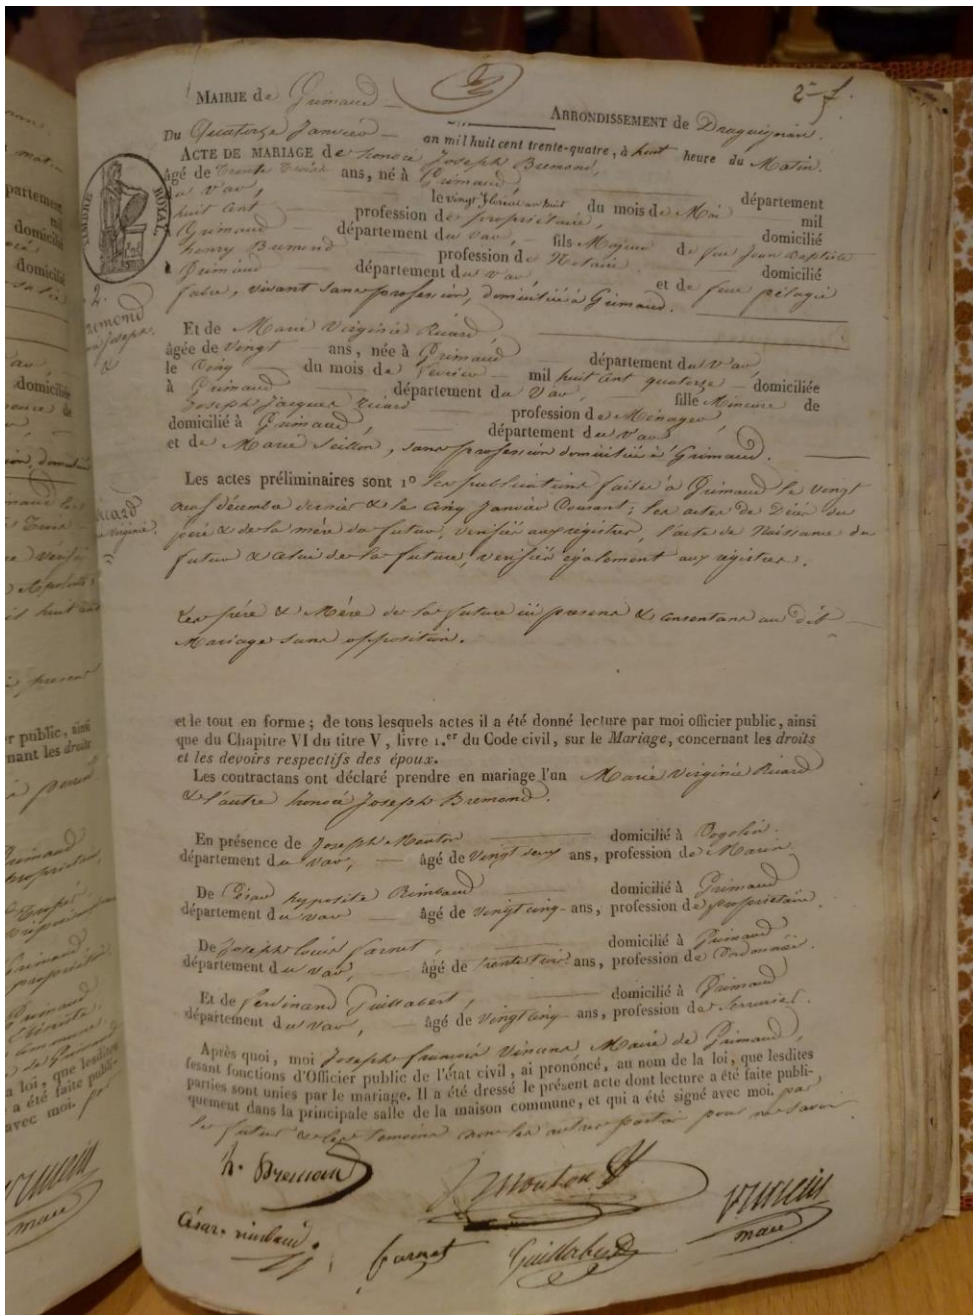 2e f.
MAIRIE de Grimaud
ARRONDISSEMENT de Draguignan.
Du Quatorze Janvier an mil huit cent trente-quatre, à huit heure du Matin.
ACTE DE MARIAGE de honoré Joseph Bremond,
âgé de trente trois ans, né à Grimaud, département
du Var, le vingt floréal an huit du mois de Mai mil
huit cent profession de propriétaire, domicilié
Grimaud département du Var, fils Majeur de feu Jean Baptiste
henry Bremond profession de Notaire domicilié
Grimaud département du Var et de feue pélagie
fabre, vivant sans profession, domiciliée à Grimaud.
TIMBRE ROYAL
2.
Bremond
Joseph
&
Ricard
Virginie.
Et de Marie Virginie Ricard,
âgée de vingt ans, née à Grimaud département du Var,
le Cinq du mois de février mil huit cent quatorze domiciliée
à Grimaud département du Var, fille Mineure de
Joseph Jacques Ricard profession de Ménager
domicilié à Grimaud, département du Var
et de Marie Seillon, sans profession domiciliée à Grimaud.
Les actes préliminaires sont 1o les publications faites à Grimaud le vingt
neuf décembre dernier & le cinq Janvier Courant; les actes de Décès du
père & de la mère du futur, vérifiés aux régistres, l'acte de Naissance du
futur & celui de la future, vérifiés également aux régistres.
Les père & Mère de la future ici présens & consentans au dit
Mariage sans opposition.
et le tout en forme; de tous lesquels actes il a été donné lecture par moi officier public, ainsi
que du Chapitre VI du titre V, livre 1.er du Code civil, sur le Mariage, concernant les droits
et les devoirs respectifs des époux.
Les contractans ont déclaré prendre en mariage l'un Marie Virginie Ricard
& l'autre honoré Joseph Bremond.
En présence de Joseph Mouton domicilié à Cogolin
département du Var, âgé de vingt deux ans, profession de Marin
De César hyppolite Rimbaud domicilié à Grimaud
département du Var âgé de vingt cinq ans, profession de propriétaire.
De Joseph Louis farnet, domicilié à Grimaud
département du Var, âgé de trente trois ans, profession de Cordonnier.
Et de ferdinand Guillabert, domicilié à Grimaud
département du Var, âgé de vingt cinq ans, profession de Serrurier.
Après quoi, moi Joseph françois Vincens Maire de Grimaud,
fesant fonctions d'Officier public de l'état civil, ai prononcé, au nom de la loi, que lesdites
parties sont unies par le mariage. Il a été dressé le présent acte dont lecture a été faite publi-
quement dans la principale salle de la maison commune, et qui a été signé avec moi. par
le futur & les témoins non les autres parties pour ne savoir
h. Bremond
J Mouton
Vincens
maire
César. rimbaud.
farnet
Guillabert